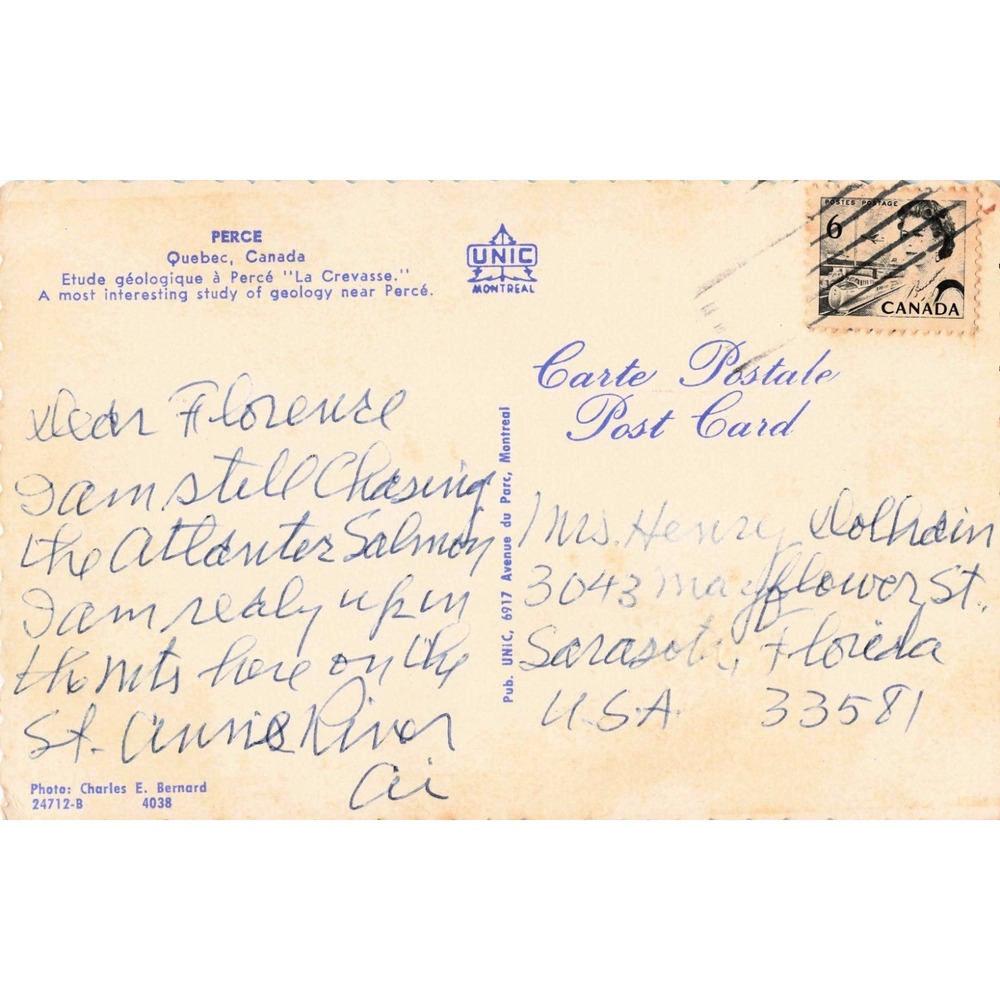 PERCE
Quebec, Canada
Etude géologique à Percé "La Crevasse."
A most interesting study of geology near Percé.
UNIC
MONTREAL
POSTES POSTAGE
6
CANADA
Carte Postale
Post Card
Dear Florence
I am still Chasing
the Atlantic Salmon
I am realy up in
the mts here on the
St. Anne River
Pub. UNIC, 6917 Avenue du Parc, Montreal
Mrs. Henry Dolhain
3043 Mayflower St.
Sarasota, Florida
U.S.A. 33581
Photo: Charles E. Bernard
24712-B 4038